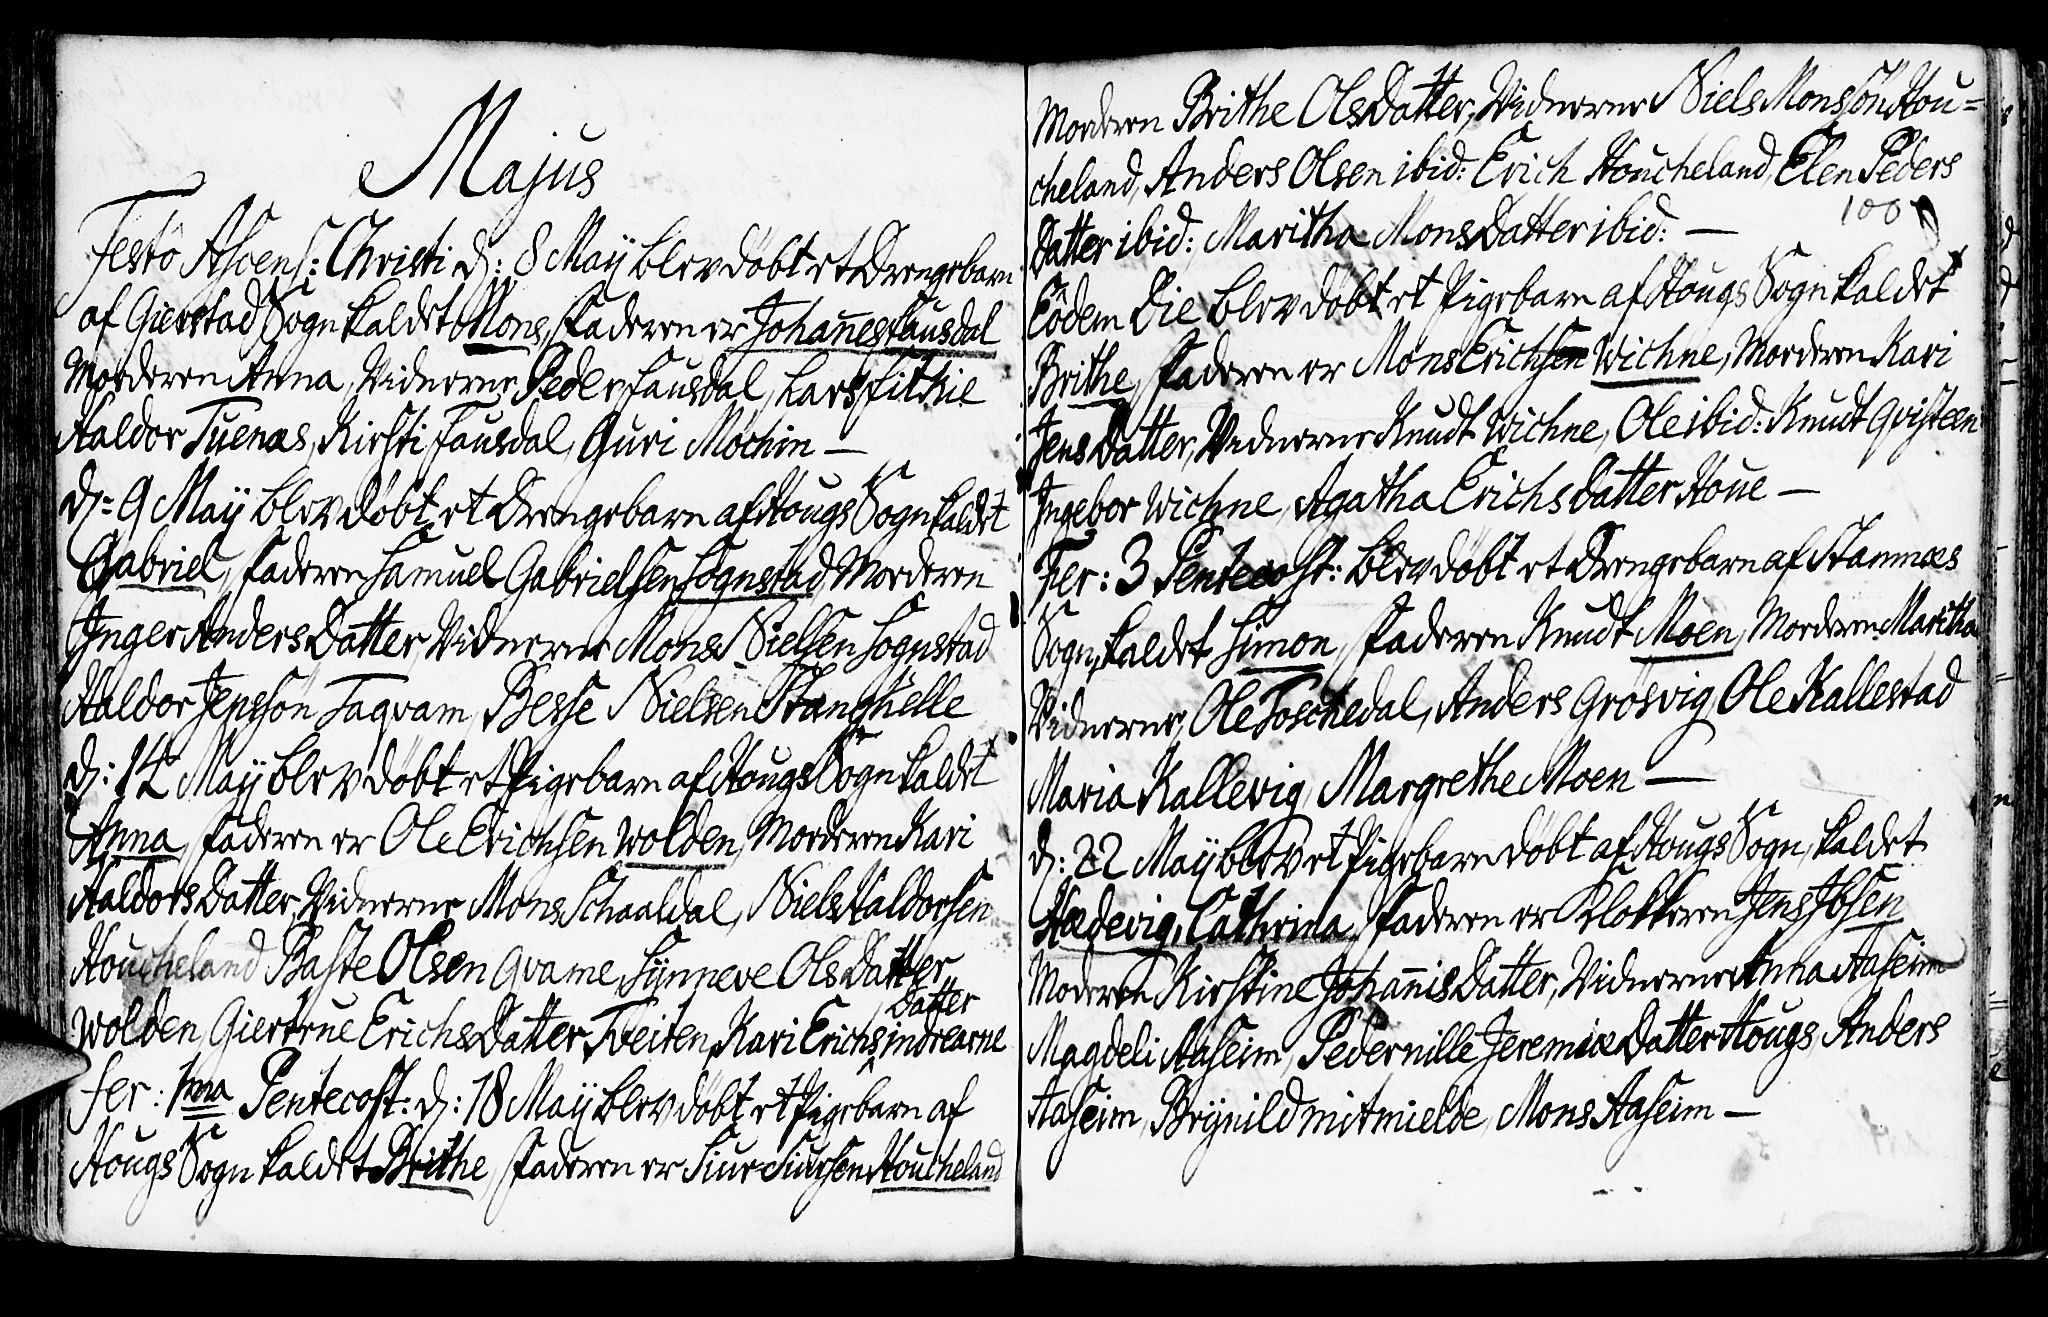 Majus
Festo Ascens: Christi d: 8 Maÿ blev döbt et Drengebarn
af Gierstad Sogn kaldet Mons, Faderen er Johannes Fausdal
Moderen Anna, Vidnerne Peder Fausdal, Lars Fithie
Haldor Tuenæs, Kirsti Fausdal, Guri Mochin —
d: 9 Maÿ blev döbt et Drengebarn af Hougs Sogn kaldet
Gabriel, Faderen Samuel Gabrielsen Sognstad, Moderen
Inger Anders Datter, Vidnerne Mons Nielsen Sognstad
Haldor Jenssön Taqvam, Besse Nielsen Stanghelle
d: 14 Maÿ blev döbt et Pigebarn af Hougs Sogn kaldet
Anna, Faderen er Ole Erichsen Wolden, Moderen Kari
Haldors Datter, Vidnerne Mons Schaaldal, Niels Haldorsen
Houcheland Baste Olsen Qvame, Sÿnneve Ols Datter
Datter
Wolden, Giertrue Erichs Datter Tveiten, Kari Erichs indrearne
Fer: 1ma Pentecost: d: 18 Maÿ blev döbt et Pigebarn af
Hougs Sogn kaldet Brithe, Faderen er Siur Siursen Houcheland
Moderen Brithe Ols Datter, Vidnerne Niels Monssön Hou=
cheland, Anders Olsen ibid: Erich Houcheland, Elen Peders
100
Datter ibid: Maritha Mons Datter ibid: —
Eodem Die blev döbt et Pigebarn af Hougs Sogn kaldet
Brithe, Faderen er Mons Erichsen Wichne, Moderen Kari
Jens Datter, Vidnerne Knudt Wichne, Ole ibid: Knudt Qvisteen
Ingebor Wichne, Agatha Erichs Datter Houe —
Fer: 3 Pentecost: blev döbt et Drengebarn af Stamnæs
Sogn, kaldet Simon, Faderen Knudt Moen, Moderen Maritha
Vidnerne, Ole Toschedal, Anders Grösvig Ole Kallestad
Maria Kallevig, Margrethe Moen —
d: 22 Maÿ blev et Pigebarn döbt af Hougs Sogn, kaldet
Hædevig, Cathrina, Faderen er Klokkeren Jens Ibsen
Moderen Kirstine Johannis Datter, Vidnerne Anna Aaseim
Magdeli Aaseim, Pedernille Jeremiæ Datter Hougs, Anders
Aaseim, Brÿnild mitmielde, Mons Aaseim —